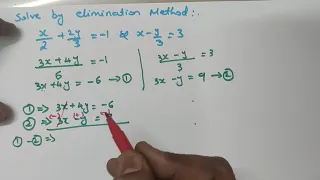 Solve by elimination Method:-
x/2 + 2y/3 = -1 & x - y/3 = 3
3x + 4y / 6 = -1
3x + 4y = -6 → ①
3x - y / 3 = 3
3x - y = 9 → ②
① ⇒ 3x + 4y = -6
② ⇒ 3x - y =
(-) (+)
① - ② ⇒